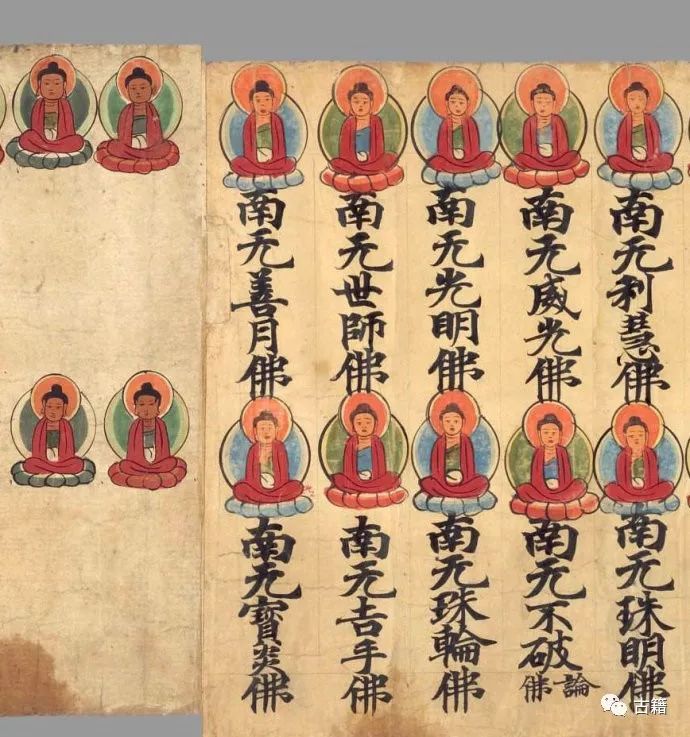 南无利慧佛
南无珠明佛
南无威光佛
南无不破論佛
南无光明佛
南无珠輪佛
南无世師佛
南无吉手佛
南无善月佛
南无寶炎佛
古籍